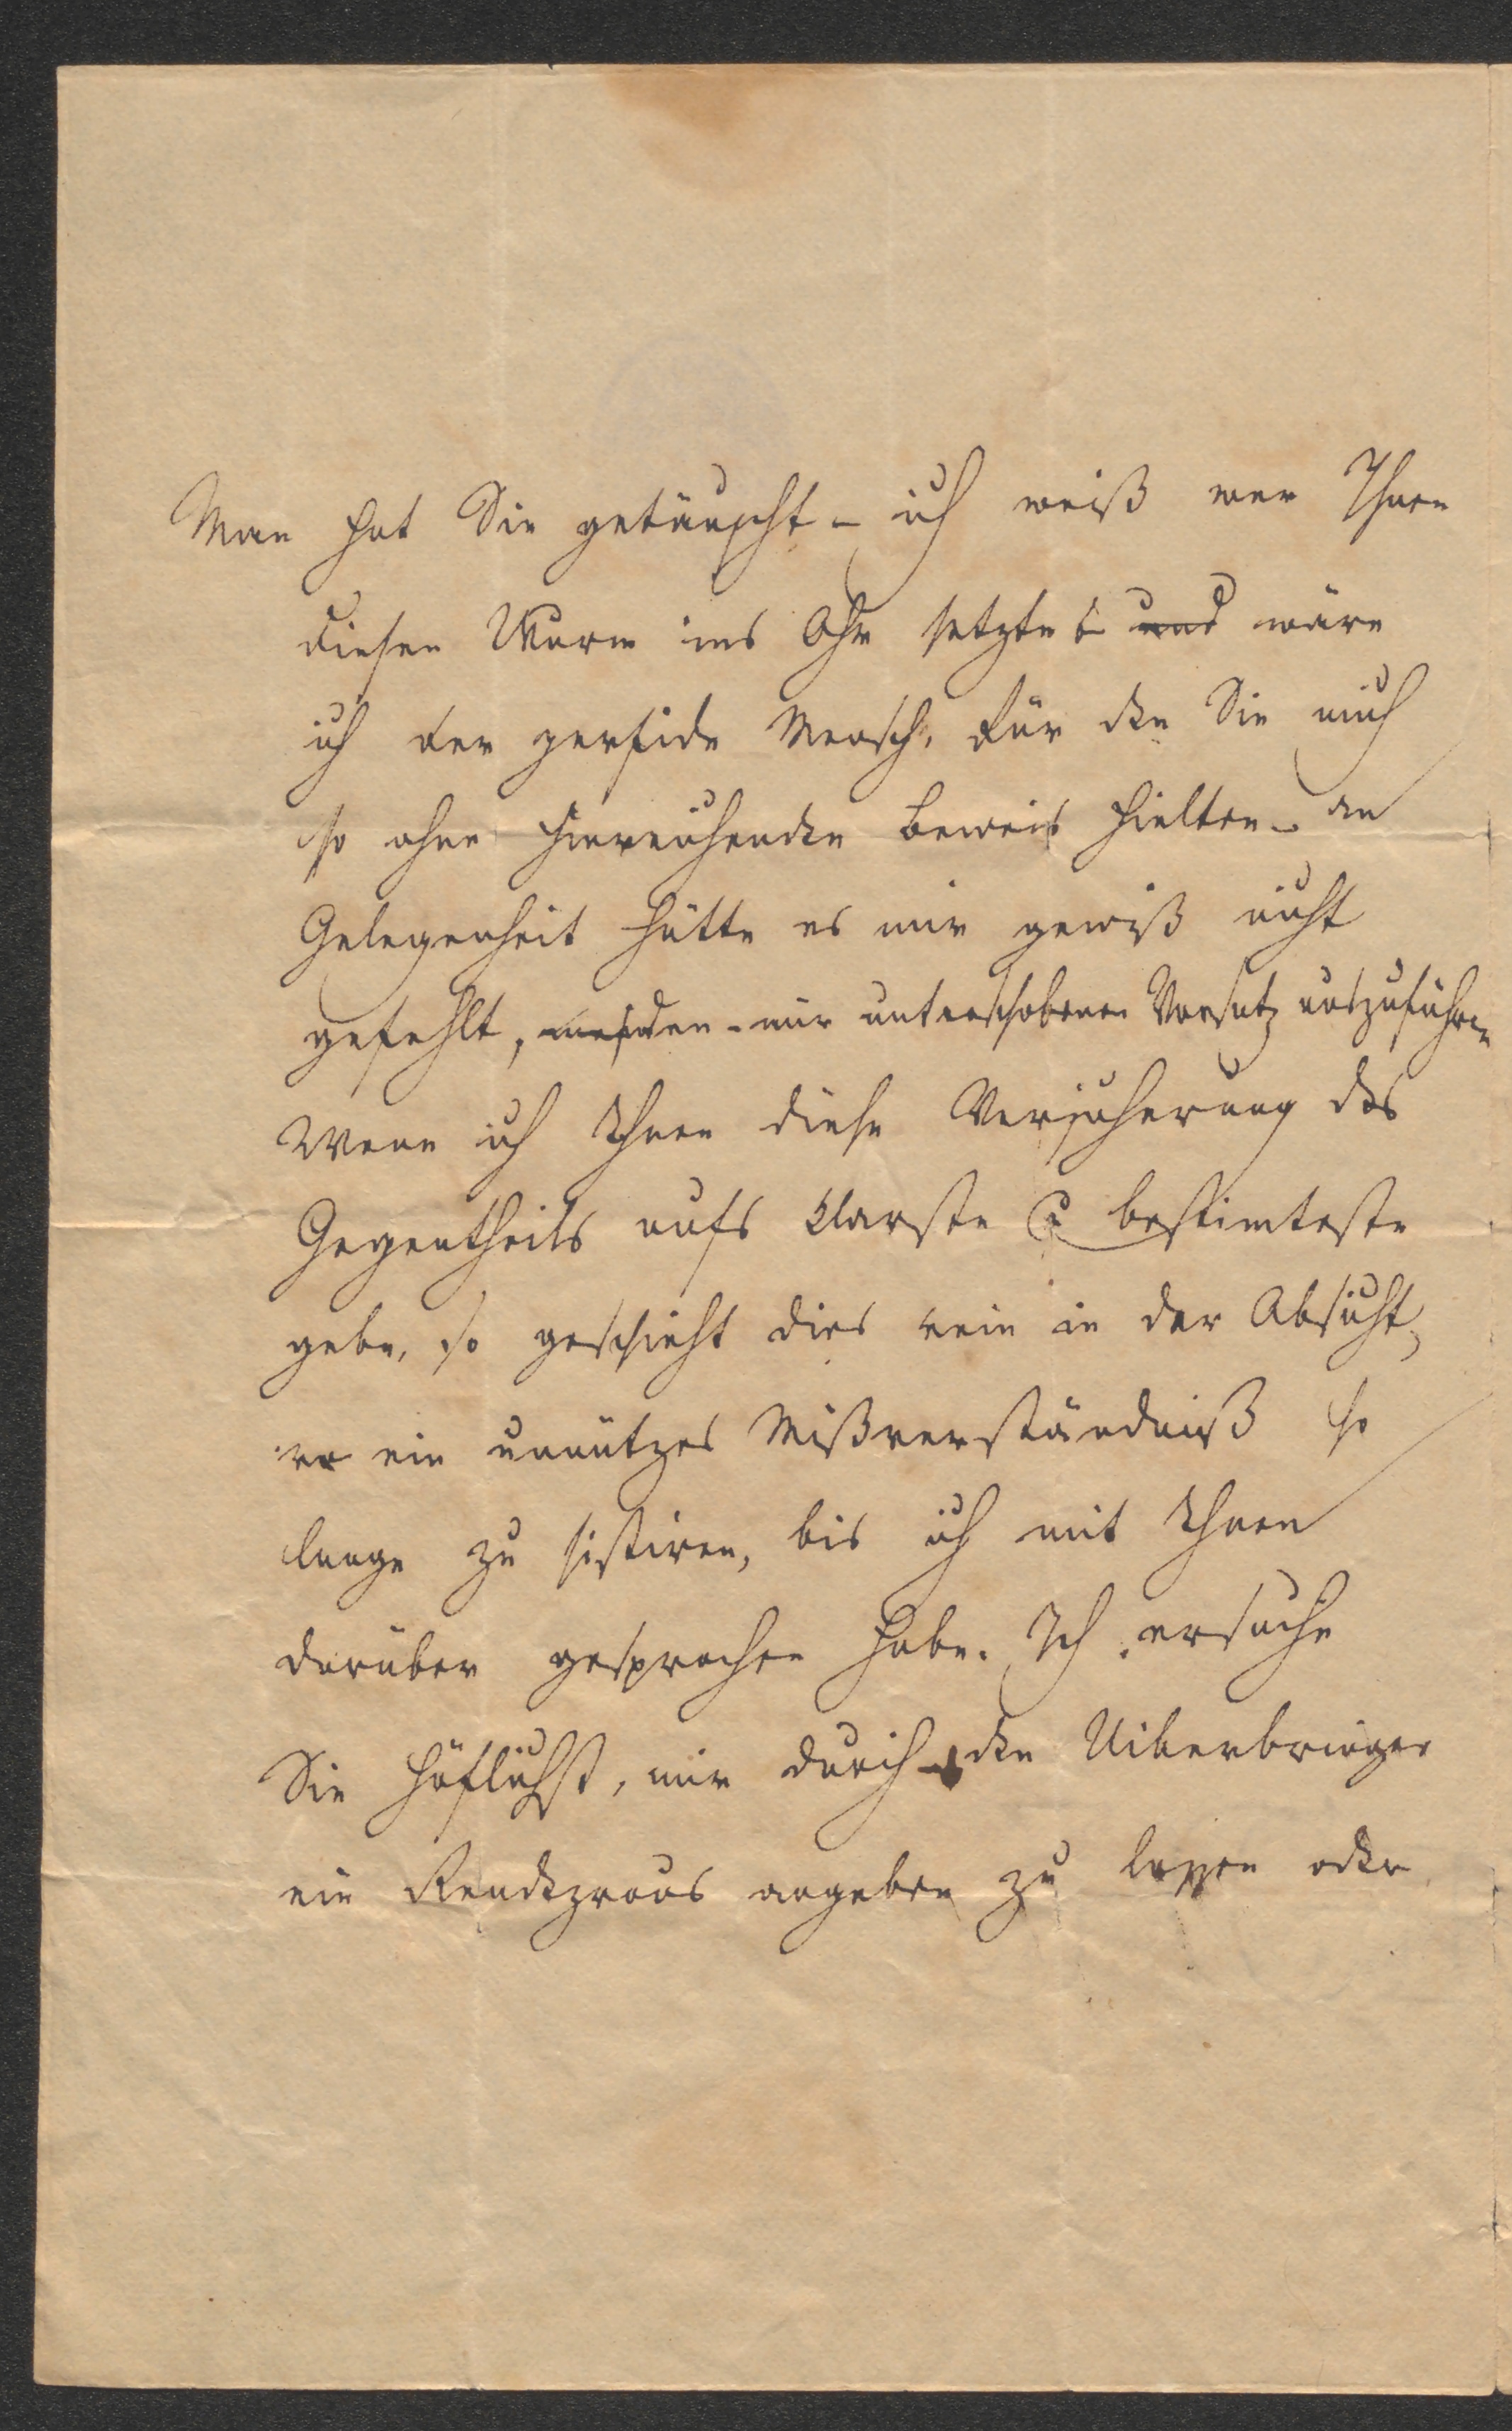 Man hat Sie getäuscht – ich weiß wer Ihnen
diesen Wurm ins Ohr setzte – und wäre
ich der perfide Mensch, für den Sie mich
so ohne hinreichenden Beweis hielten – an
Gelegenheit hätte es mir gewiß nicht
gefehlt, den mir unterschobenen Vorsatz auszuführen
Wenn ich Ihnen diese Versicherung des
Gegentheils aufs klarste & bestimteste
gebe, so geschieht dies rein in der Absicht,
ein unnützes Mißverständniß so
lange zu sistiren, bis ich mit Ihnen
darüber gesprochen habe. Ich ersuche
Sie höflichst, mir durch den Uiberbringer
ein Rendezvous angeben zu lassen oder